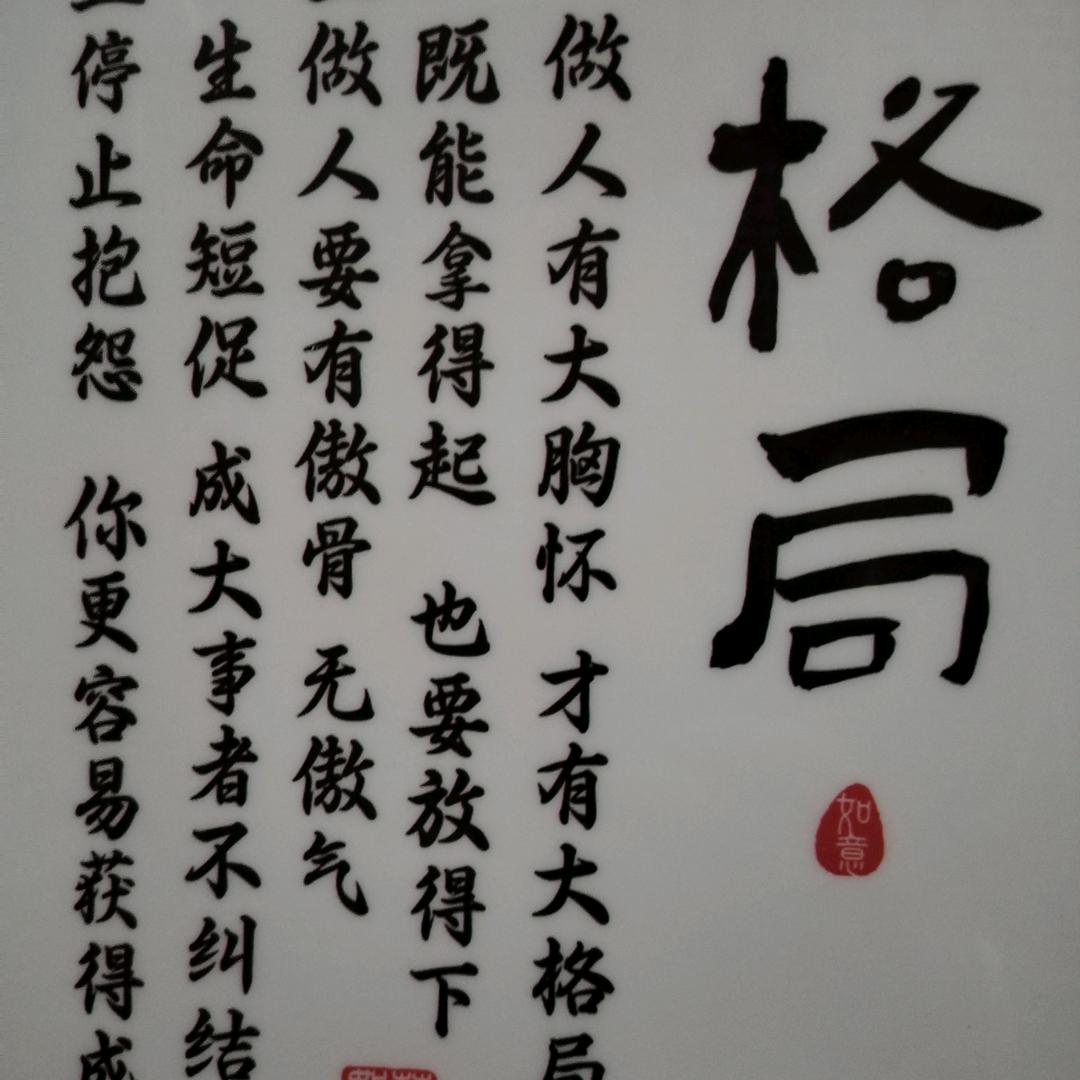 格局
如意
做人有大胸怀 才有大格局
既能拿得起 也要放得下
做人要有傲骨 无傲气
生命短促 成大事者不纠结
停止抱怨 你更容易获得成